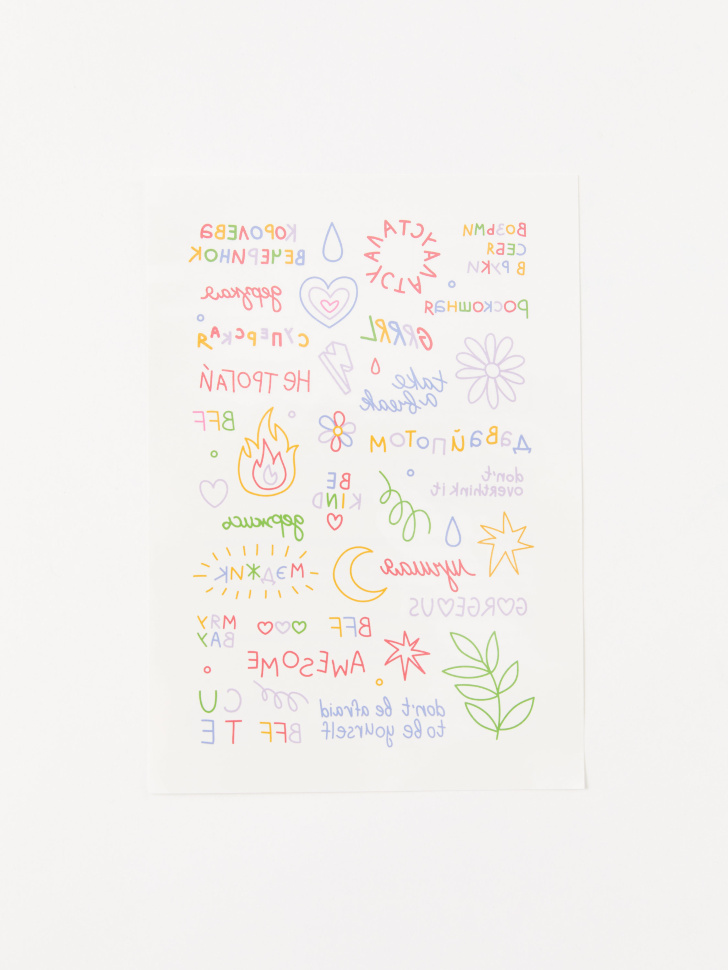 КОРОЛЕВА
ВЕЧЕРИНОК
УСТАЛА УСТАЛА
ВОЗЬМИ
СЕБЯ
В РУКИ
дерзкая
РОСКОШНАЯ
СУПЕРСКАЯ
GRRRL
НЕ ТРОГАЙ
take
a break
BFF
ДАВАЙ ПОТОМ
don't
overthink it
BE
KIND
держись
МЭДЖИК
лучшая
GORGEOUS
MRY
BAY
BFF
AWESOME
CU
TE
BFF
don't be afraid
to be yourself